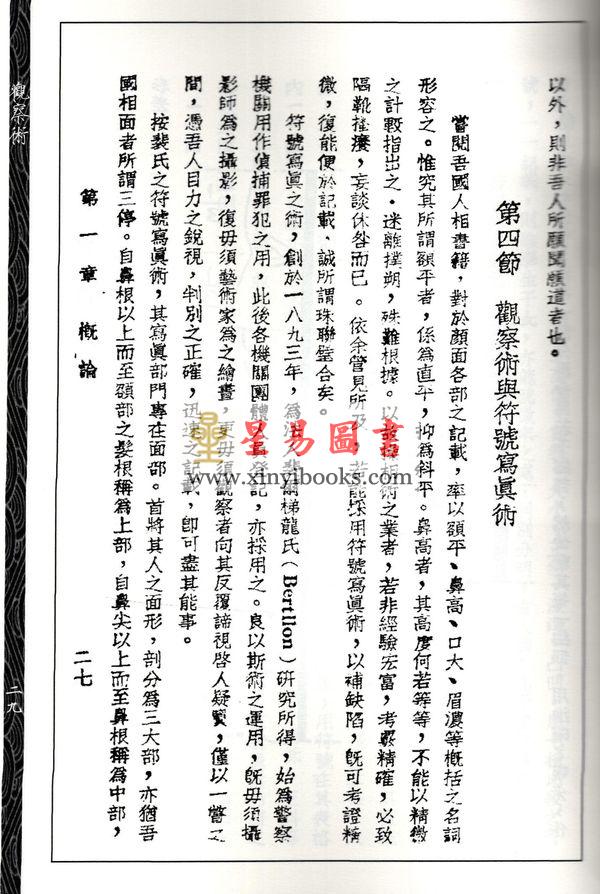 以外，則非吾人所願聞願道者也。
第四節　觀察術與符號寫眞術
嘗閱吾國人相書籍，對於顏面各部之記載，率以額平、鼻高、口大、眉濃等槪括之名詞
形容之。惟究其所謂額平者，係爲直平，抑爲斜平。鼻高者，其高度何若等等，不能以精微
之計數指出之。迷離撲朔，殊難根據。以故操相術之業者，若非經驗宏富，考覈精確，必致
隔靴搔癢，妄談休咎而已。依余管見所及，若能採用符號寫眞術，以補缺陷，旣可考證精
微，復能便於記載、誠所謂珠聯璧合矣。
符號寫眞之術，創於一八九三年，爲法人裴爾梯龍氏（Bertllon）硏究所得，始爲警察
機關用作偵捕罪犯之用，此後各機關團體人員登記，亦採用之。良以斯術之運用，旣毋須攝
影師爲之攝影，復毋須藝術家爲之繪畫，更毋須觀察者向其反覆諦視啓人疑竇，僅以一瞥之
間，憑吾人目力之銳視，判別之正確，迅速之記載，卽可盡其能事。
按裴氏之符號寫眞術，其寫眞部門專在面部。首將其人之面形，剖分爲三大部，亦猶吾
國相面者所謂三停。自鼻根以上而至額部之髮根稱爲上部，自鼻尖以上而至鼻根稱爲中部，
第一章　槪論
二七
觀察術
二九
星易圖書
www.xinyibooks.com